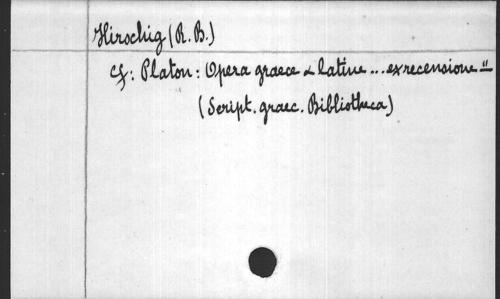 Hirschig (R. B.)
cf: Platon: Opera graece & latine ... ex recensione "
(Script. graec. Bibliotheca)